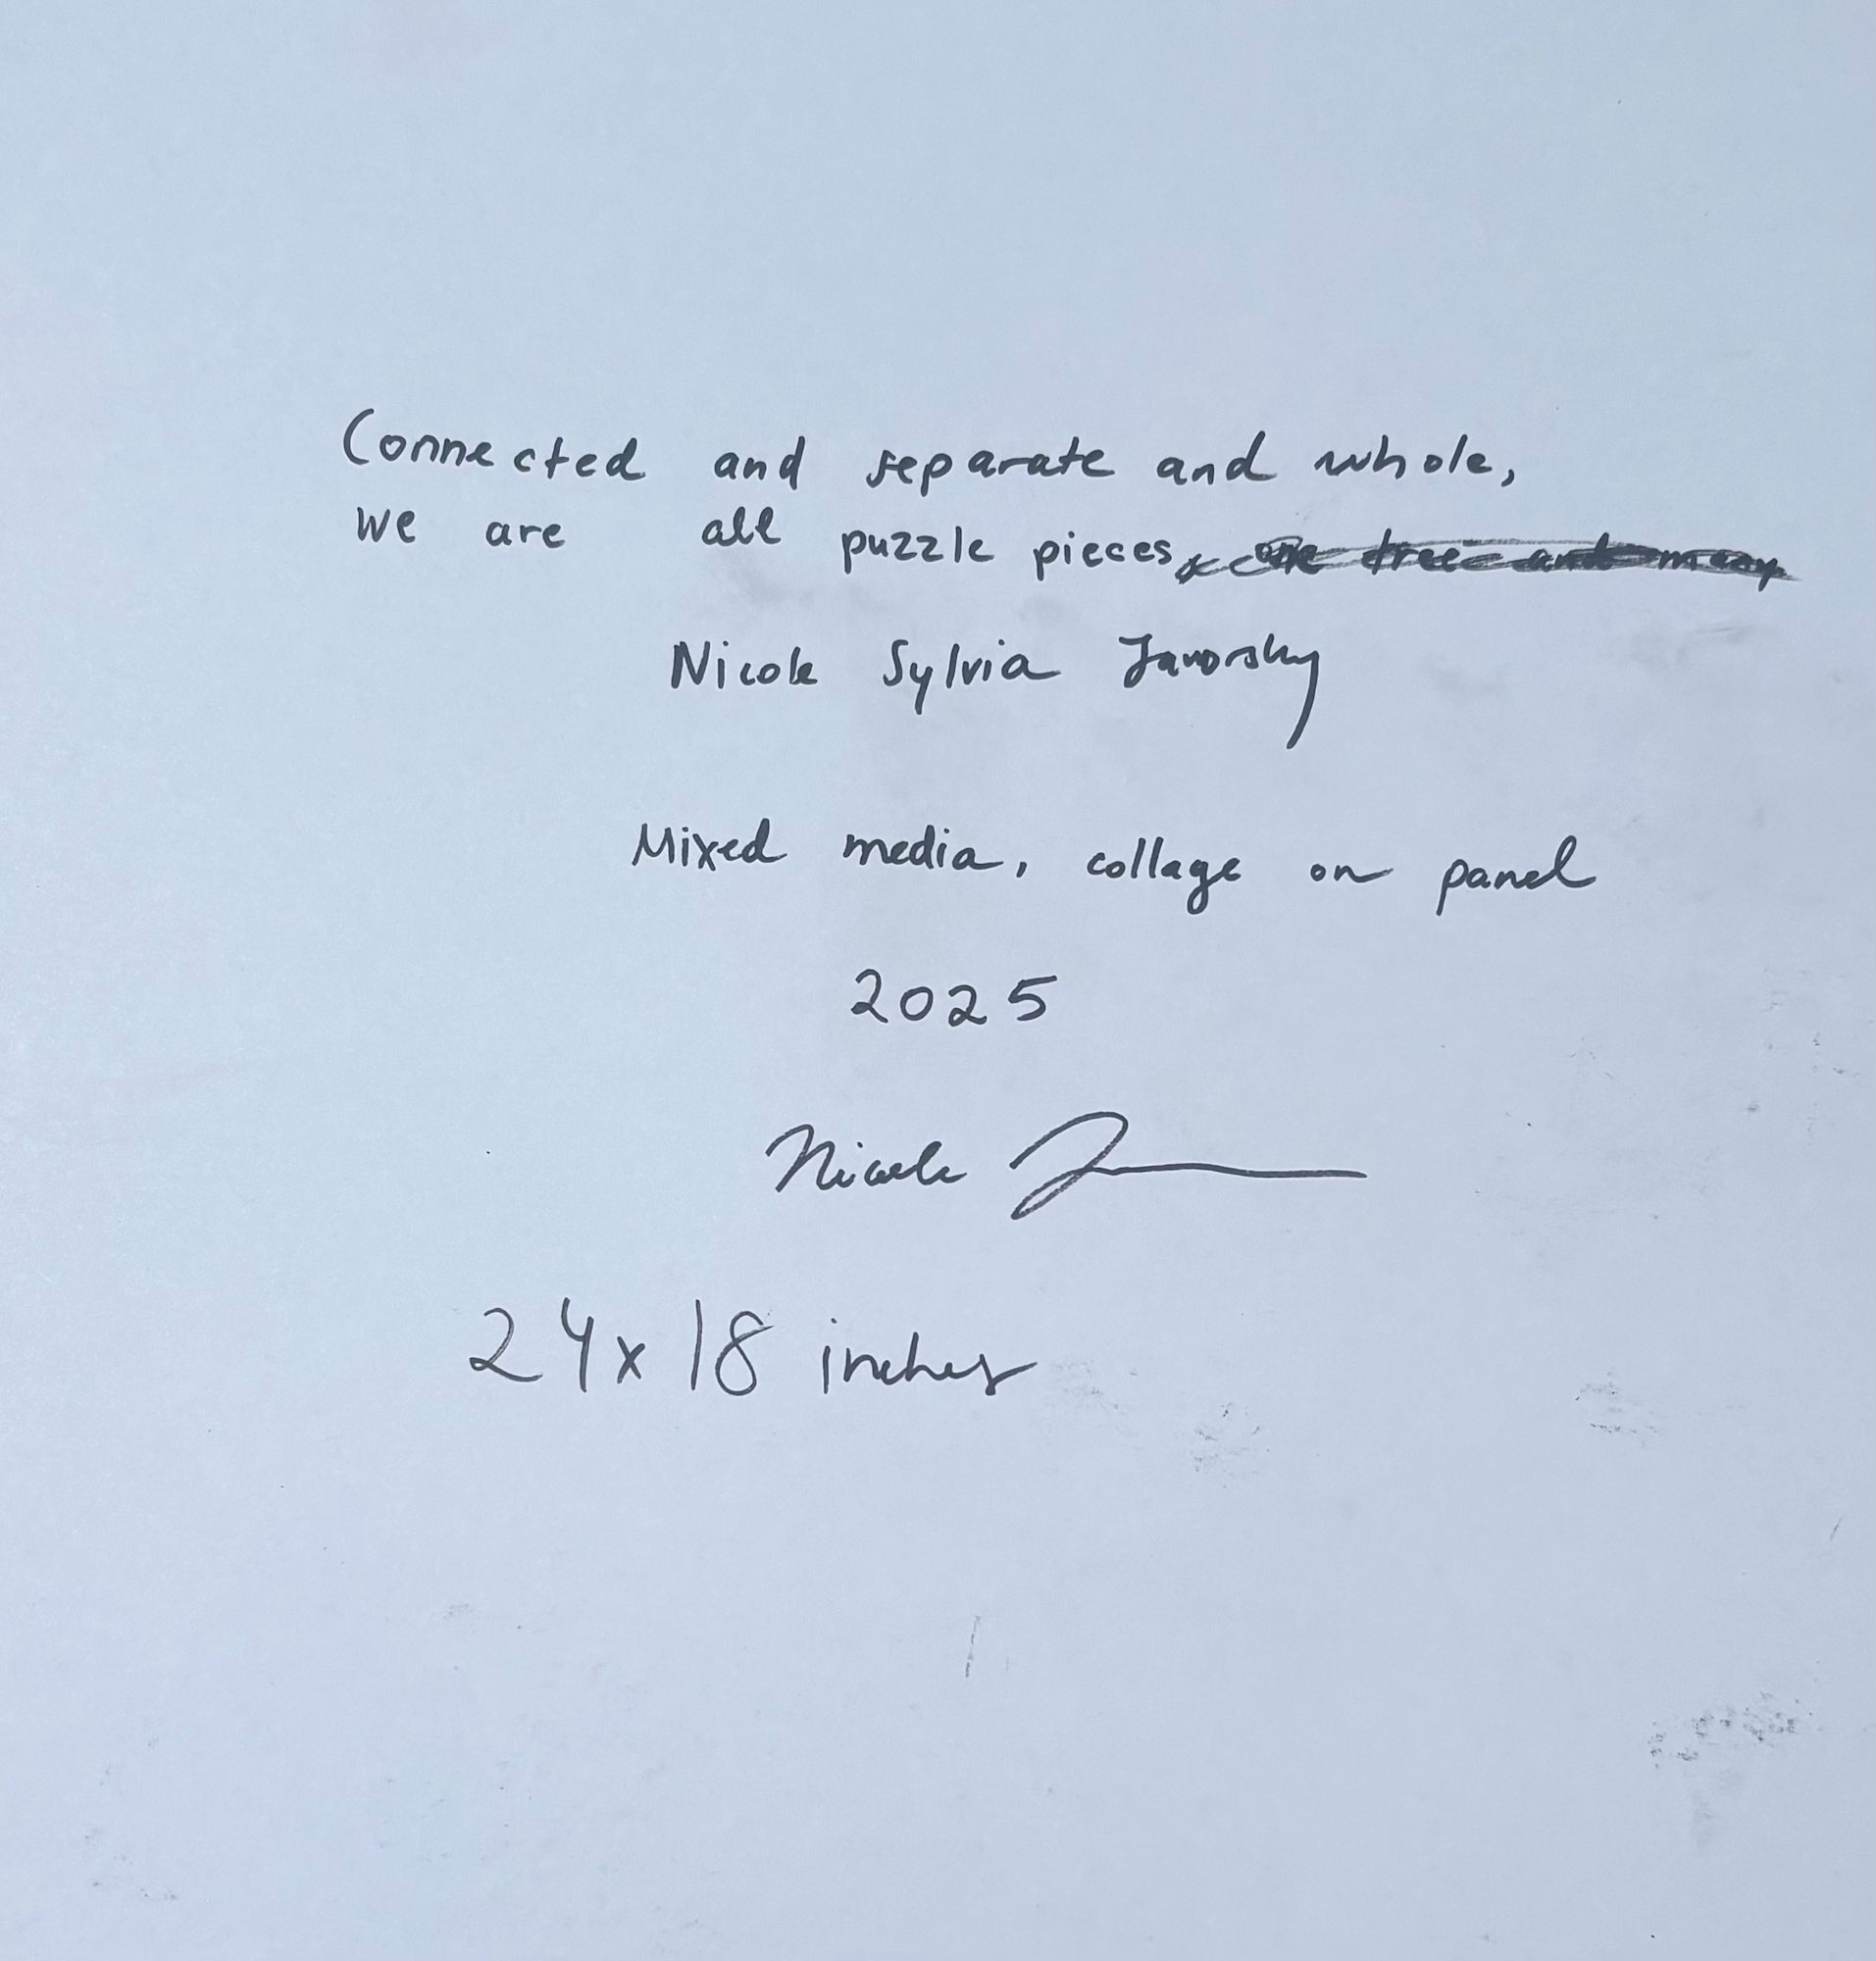 Connected and separate and whole,
We are all puzzle pieces, one tree and many
Nicole Sylvia Javorsky
Mixed media, collage on panel
2025
Nicole J
24x18 inches